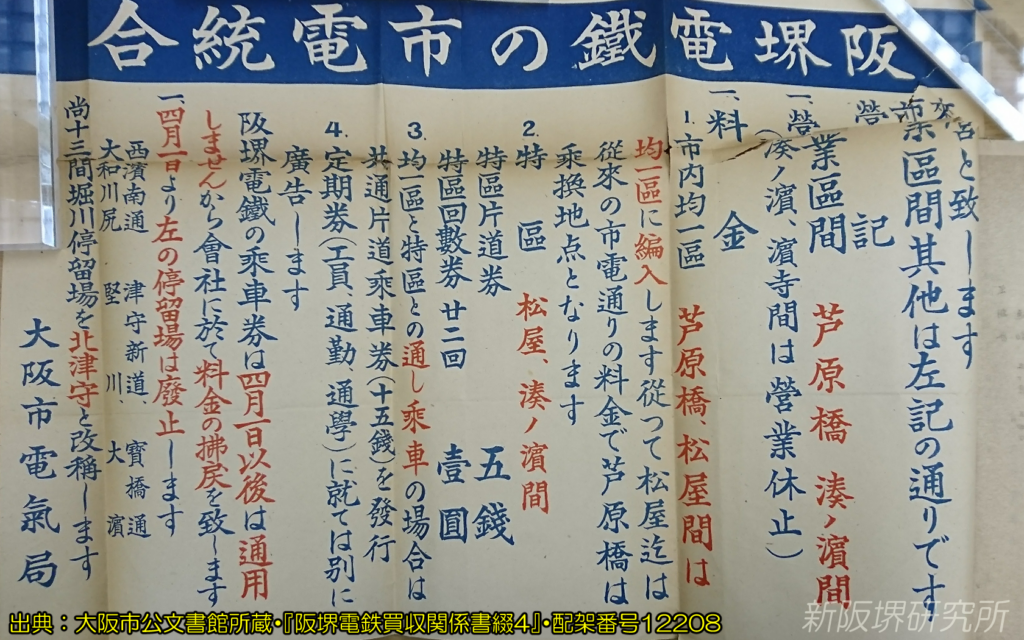 阪堺電鐵の市電統合
營と致します
業區間其他は左記の通りです
記
一、營業區間 芦原橋 湊ノ濱間
(湊ノ濱、濱寺間は營業休止)
一、料金
1.市内均一區 芦原橋、松屋間は
均一區に編入します從つて松屋迄は
從來の市電通りの料金で芦原橋は
乘換地点となります
2.特區 松屋、湊ノ濱間
特區片道券 五錢
特區回數券 廿二回 壹圓
3.均一區と特區との通し乘車の場合は
共通片道乘車券(十五錢)を發行
4.定期券(工員、通勤、通學)に就ては別に
廣告します
阪堺電鐵の乘車券は四月一日以後は通用
しませんから會社に於て料金の拂戻を致します
一、四月一日より左の停留場は廢止します
西濱南通 津守新道、寶橋通
大和川尻 堅川、大濱
尚十三間堀川停留場を北津守と改稱します
大阪市電氣局
出典：大阪市公文書館所蔵・『阪堺電鉄買収関係書綴4』・配架番号12208
新阪堺研究所